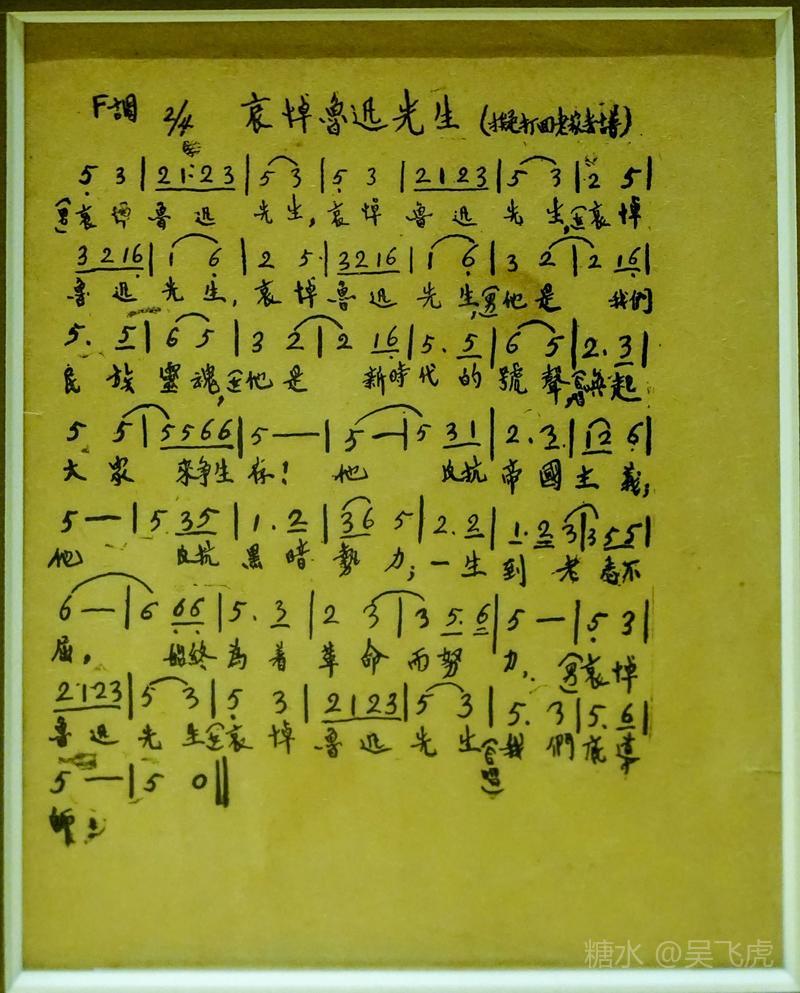 F調 2/4 哀悼魯迅先生 (擬打回老家去譜)
5 3 | 2 1·2 3 | 5 3 | 5 3 | 2 1 2 3 | 5 3 | 2 5 |
(男)哀悼魯迅先生,哀悼魯迅先生,(女)哀悼
3 2 1 6 | 1 6 | 2 5 | 3 2 1 6 | 1 6 | 3 2 | 2 1 6 |
魯迅先生,哀悼魯迅先生,(男)他是我們
5. 5 | 6 5 | 3 2 | 2 1 6 | 5. 5 | 6 5 | 2. 3 |
民族靈魂,(女)他是新時代的號聲,(合唱)喚起
5 5 | 5 5 6 6 | 5 — | 5 — | 5 3 1 | 2. 2 | 1 2 6 |
大家來爭生存!他反抗帝國主義;
5 — | 5 3 5 | 1. 2 | 3 6 5 | 2. 2 | 1. 2 3 | 3 5 5 |
他反抗黑暗勢力;一生到老志不
6 — | 6 6 6 | 5. 3 | 2 3 | 3 5. 6 | 5 — | 5 3 |
屈,始終為着革命而努力,(男)哀悼
2 1 2 3 | 5 3 | 5 3 | 2 1 2 3 | 5 3 | 5. 3 | 5. 6 |
魯迅先生(女)哀悼魯迅先生(合唱)我們底導
5 — | 5 0 ||
師!
糖水 @吴飞虎